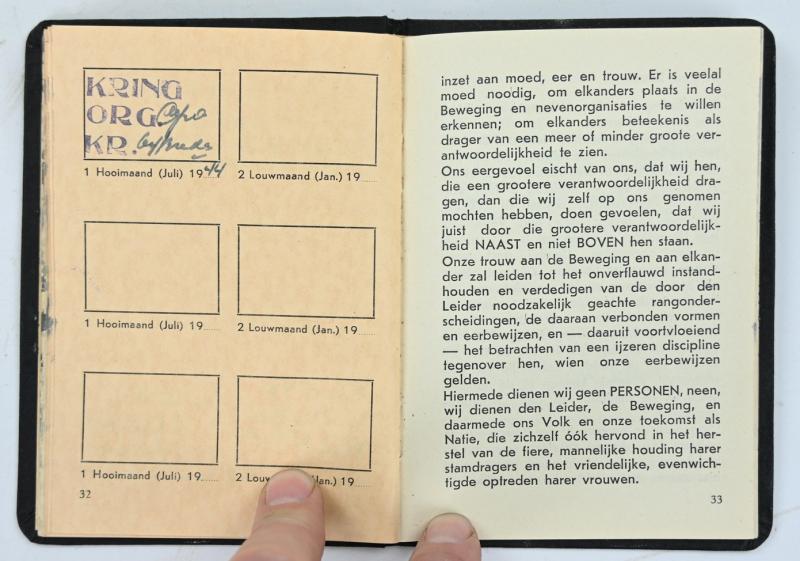 KRING
ORG
KR.
1 Hooimaand (Juli) 1944
2 Louwmaand (Jan.) 19
1 Hooimaand (Juli) 19
2 Louwmaand (Jan.) 19
1 Hooimaand (Juli) 19
2 Louw (Jan.) 19
32
inzet aan moed, eer en trouw. Er is veelal
moed noodig, om elkanders plaats in de
Beweging en nevenorganisaties te willen
erkennen; om elkanders beteekenis als
drager van een meer of minder groote ver-
antwoordelijkheid te zien.
Ons eergevoel eischt van ons, dat wij hen,
die een grootere verantwoordelijkheid dra-
gen, dan die wij zelf op ons genomen
mochten hebben, doen gevoelen, dat wij
juist door die grootere verantwoordelijk-
heid NAAST en niet BOVEN hen staan.
Onze trouw aan de Beweging en aan elkan-
der zal leiden tot het onverflauwd instand-
houden en verdedigen van de door den
Leider noodzakelijk geachte rangonder-
scheidingen, de daaraan verbonden vormen
en eerbewijzen, en — daaruit voortvloeiend
— het betrachten van een ijzeren discipline
tegenover hen, wien onze eerbewijzen
gelden.
Hiermede dienen wij geen PERSONEN, neen,
wij dienen den Leider, de Beweging, en
daarmede ons Volk en onze toekomst als
Natie, die zichzelf óók hervond in het her-
stel van de fiere, mannelijke houding harer
stamdragers en het vriendelijke, evenwich-
tigde optreden harer vrouwen.
33